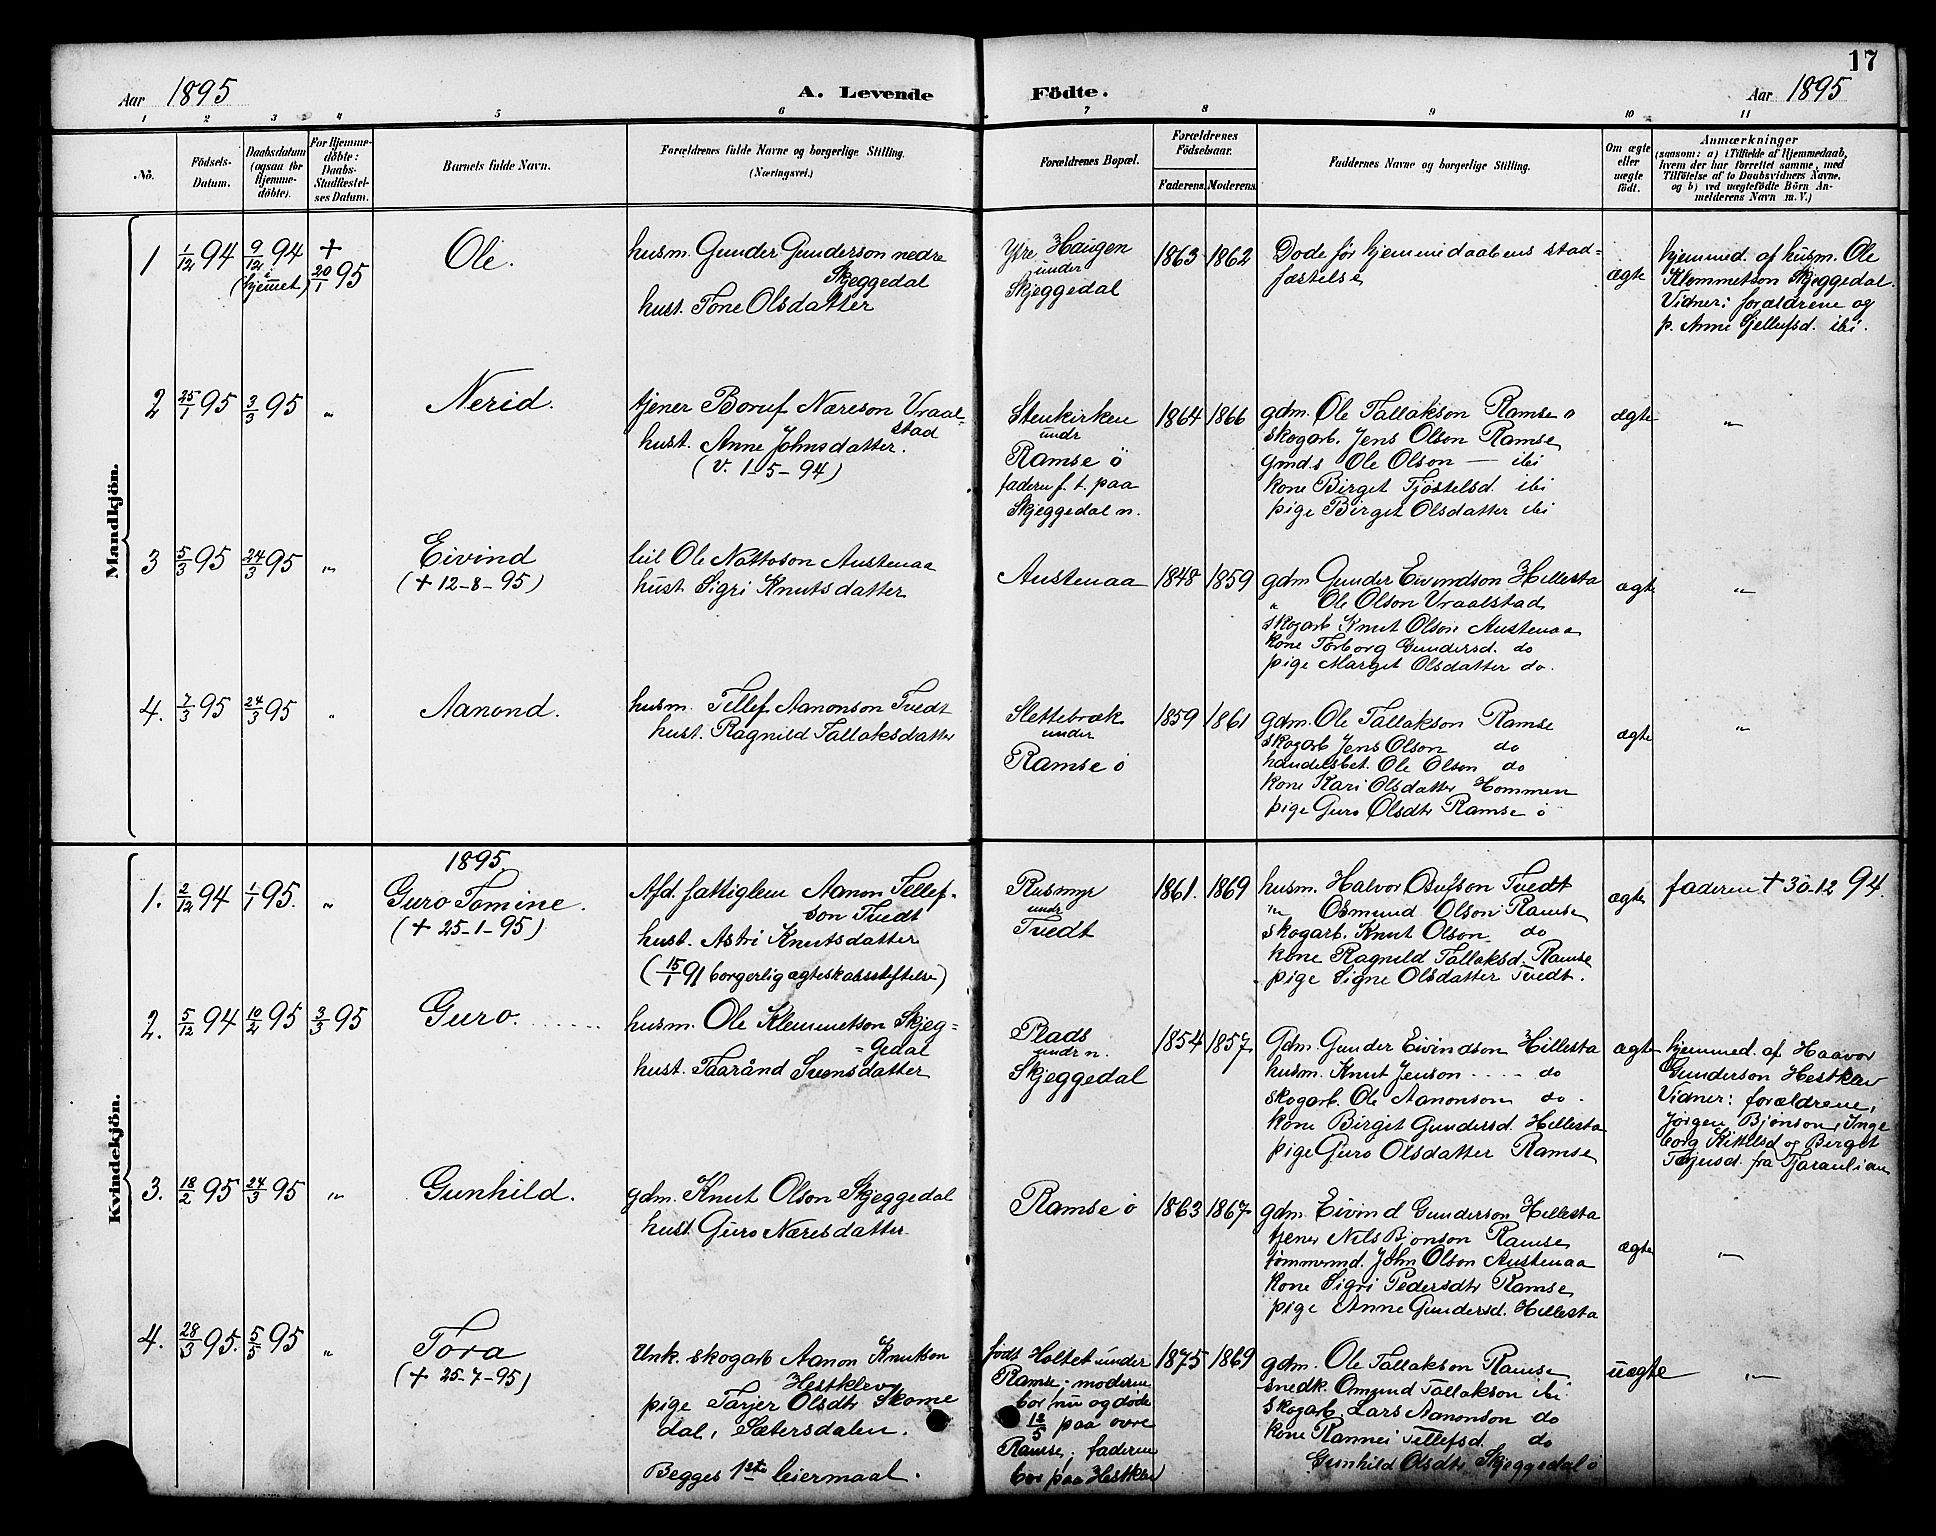 17
Aar 1895
A. Levende Födte.
Aar 1895
1 2 3 4 5 6 7 8 9 10 11
No.
Födsels-Datum.
Daabsdatum (ogsaa for Hjemme-döbte).
For Hjemme-döbte: Daabs-Stadfæstel-ses Datum.
Barnets fulde Navn.
Forældrenes fulde Navne og borgerlige Stilling.
(Næringsvei.)
Forældrenes Bopæl.
Forældrenes Födselsaar.
Faderens. Moderens.
Faddernes Navne og borgerlige Stilling.
Om ægte eller uægte födt.
Anmærkninger
(saasom: a) i Tilfælde af Hjemmedaab,
hvem der har forrettet samme, med
Tilföielse af to Daabsvidners Navne,
og b) ved uegtefödte Börn An-
melderens Navn m. V.)
Mandkjön.
1 1/12 94 9/12 94 (i hjemmet) + 20/1 95
Ole.
husm. Gunder Gunderson nedre
Skjeggedal
hust. Tone Olsdatter
Yfre Haugen
under
Skjeggedal
1863 1862
Dode før hjemmedaabens stad=
fæstelse
ægte
hjemmed. af husm. Ole
Klemmetson Skjeggedal.
Vidner: forældrene og
p. Anne Gjellufsd. ibi.
2 25/1 95 3/3 95 "
Nerid.
tjener Boruf Næreson Vraal-
stad
hust. Anne Johnsdatter.
(v. 1-5-94)
Stenkirken
undr
Ramse ö
faderen f. t. paa
Skjeggedal n.
1864 1866
gdm. Ole Tallakson Ramse ö
skogarb. Jens Olson Ramse
gmd.s Ole Olson — ibi
kone Birget Tjöstelsd. ibi
pige Birget Olsdatter ibi
ægte
"
3 5/3 95 24/3 95 "
Eivind
(+ 12-8-95)
leil Ole Nattoson Austenaa
hust. Sigri Knutsdatter
Austenaa
1848 1859
gdm Gunder Eivindson Hillesta
" Ole Olson Vraalstad
skogarb. Knut Olson Austenaa
kone Torborg Gundersd. do
pige Marget Olsdatter do.
ægte
"
4. 7/3 95 24/3 95 "
Aanond.
husm. Tellef Aanonson Tvedt
hust. Ragnild Tallaksdatter
Slettebræk
under
Ramse ö
1859 1861
gdm. Ole Tallakson Ramse
skogarb Jens Olson do
handelsbet. Ole Olson do
kone Kari Olsdatter Hommen
pige Guro Olsdtr Ramse ö
ægte
"
Kvindekjön.
1895
1. 2/12 94 1/1 95. "
Guro Tomine.
(+ 25-1-95)
Afd. fattiglem Aanon Tellef-
son Tvedt
hust. Astri Knutsdatter
(15/1 91 borgerlig ægteskabsstiftelse)
Rusmyr
undr
Tvedt
1861. 1869
husm. Halvor Osufson Tvedt
" Osmund Olson Ramse
skogarb. Knut Olson do
kone Ragnild Tallaksd. Ramse
pige Signe Olsdatter Tvedt.
ægte
faderen + 30-12 94.
2. 5/12 94 10/2 95 3/3 95
Guro.
husm. Ole Klemmetson Skjeg=
=gedal
hust. Taarånd Svensdatter
Plads
undr n.
Skjeggedal
1854 1857.
Gdm. Gunder Eivindson Hillesta
husm. Knut Jenson ---- do
skogarb. Ole Aanonson do.
kone Birget Gundersd. Hillesta
pige Guro Olsdatter Ramse
ægte
hjemmed. af Haavor
Gunderson Hestklev
Vidner: forældrene,
Jörgen Bjönson, Inge
borg Kittelsd og Berget
Terjusd. fra Tjaraulian
3. 18/2 95 24/3 95 "
Gunhild.
gdm. Knut Olson Skjeggedal
hust. Guro Næresdatter
Ramse ö
1863 1867
gdm. Eivind Gunderson Hillesta
tjener Nils Bjonson Ramse
tømmermd. John Olson Austenaa
kone Sigri Pedersdtr Ramse
pige Anne Gundersd. Hillesta
ægte
"
4. 28/3 95. 5/5 95 "
Tora
(+ 25-7-95)
Unk. skogarb Aanon Knutson
Hestklev
pige Tarjer Olsdtr Skome
dal, Sætersdalen.
Begges 1ste leiermaal.
født Holtet under
Ramse; moderen
bor nu og døde
12/5 paa ovre
Ramse; faderen
bor paa Hestklev
1875 1869
gdm. Ole Tallakson Ramse
snedk. Omund Tallakson ibi
skogarb. Lars Aanonson do
kone Rannei Tellefsd. do
Gunhild Olsdtr Skjeggedal ö
uægte
"